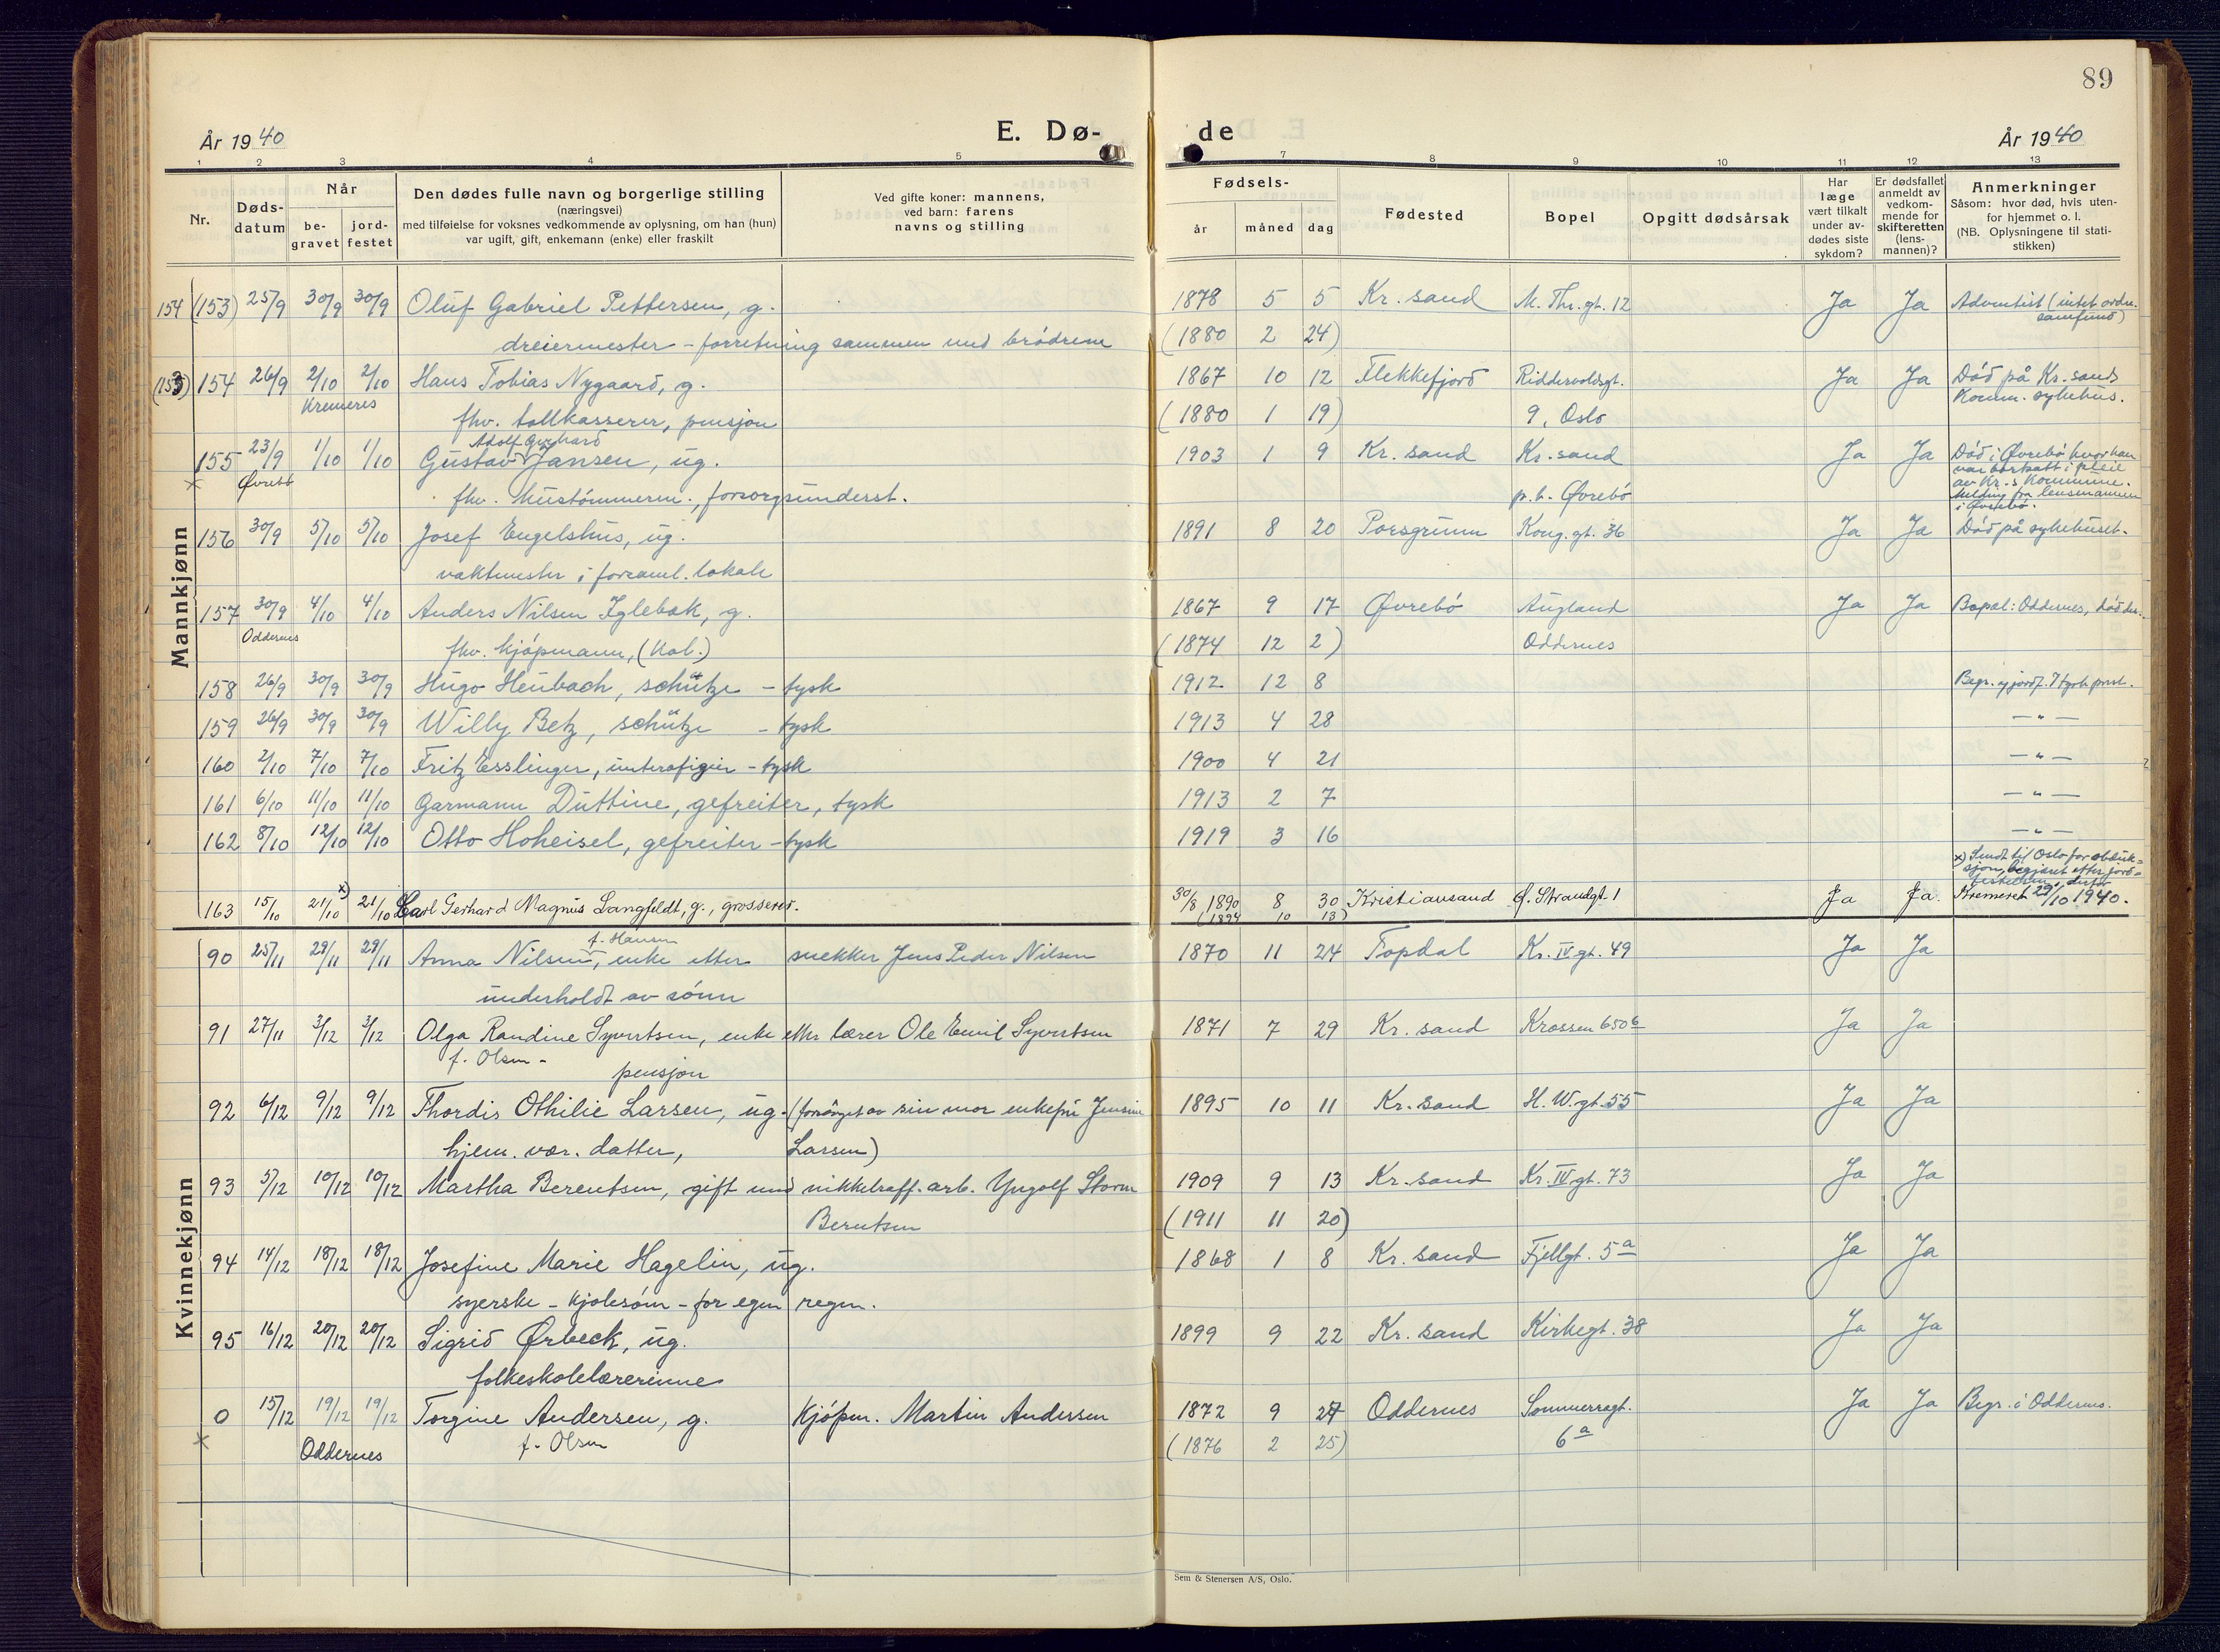 89
År 1940
E. Dø-
de
År 1940
1 2 3 4 5 7 8 9 10 11 12 13
Nr.
Døds-
datum
Når
be-
gravet
jord-
festet
Den dødes fulle navn og borgerlige stilling
(næringsvei)
med tilføielse for voksnes vedkommende av oplysning, om han (hun)
var ugift, gift, enkemann (enke) eller fraskilt
Ved gifte koner: mannens,
ved barn: farens
navns og stilling
Fødsels-
år måned dag
Fødested
Bopel
Opgitt dødsårsak
Har
læge
vært tilkalt
under av-
dødes siste
sykdom?
Er dødsfallet
anmeldt av
vedkom-
mende for
skifteretten
(lens-
mannen)?
Anmerkninger
Såsom: hvor død, hvis uten-
for hjemmet o. l.
(NB. Oplysningene til stati-
stikken)
Mannkjønn
154 (153) 25/9 30/9 30/9 Oluf Gabriel Pettersen, g. 1878 5 5 Kr. sand M. Thr. gt. 12 Ja Ja Adventist (intet ordn.
samfund)
dreiermester - forretning sammen med brødrene (1880 2 24)
(153) 154 26/9 2/10 2/10 Hans Tobias Nygaard, g. 1867 10 12 Flekkefjord Riddervoldsgt. Ja Ja Død på Kr.sands
Kremeres Komm. sykehus.
fhv. tollkasserer, pensjon (1880 1 19) 9, Oslo
Adolf Gerhard
155 23/9 1/10 1/10 Gustav Jansen, ug. 1903 1 9 Kr. sand Kr. sand Ja Ja Død i Øvrebø hvor han
var bortsatt i pleie
x Øvrebø av Kr.s Kommune.
fhv. hustømmerm., forsorgsunderst. p.t. Øvrebø Melding fra lensmannen
i Øvrebø.
156 30/9 5/10 5/10 Josef Engelshus, ug. 1891 8 20 Porsgrunn Kong. gt. 36 Ja Ja Død på sykehuset.
vaktmester i forsaml. lokale
157 30/9 4/10 4/10 Anders Nilsen Iglebæk, g. 1867 9 17 Øvrebø Augland Ja Ja Bopel: Oddernes, død der.
Oddernes fhv. kjøpmann, (kol.) (1874 12 2) Oddernes
158 26/9 30/9 30/9 Hugo Heubach, schütze - tysk 1912 12 8 Begr. og jordf. 7 tysk prest.
159 26/9 30/9 30/9 Willy Betz, schütze - tysk 1913 4 28 — " —
160 2/10 7/10 7/10 Fritz Esslinger, unterofizier - tysk 1900 4 21 — " —
161 6/10 11/10 11/10 Garmann Duttine, gefreiter, tysk 1913 2 7 — " —
162 8/10 12/10 12/10 Otto Hoheisel, gefreiter - tysk 1919 3 16 — " —
x) Sendt til Oslo for obduk=
sjon, begjæret etter jord=
festelsen, derfor
163 15/10 21/10 x) 21/10 Carl Gerhard Magnus Langfeldt, g., grosserer. 30/8 1890 8 30 Kristiansand Ø. Strandgt. 1 Ja Ja. Kremeret 29/10 1940.
(1894 10 13)
Kvinnekjønn
f. Hansen
90 25/11 29/11 29/11 Anna Nilsen, enke etter snekker Jens Peder Nilsen 1870 11 24 Topdal Kr. IV gt. 49 Ja Ja
underholdt av sønn
91 27/11 3/12 3/12 Olga Randine Syvertsen, enke etter lærer Ole Emil Syvertsen 1871 7 29 Kr. sand Krossen 650 6 Ja Ja
f. Olsen - pensjon
92 6/12 9/12 9/12 Thordis Othilie Larsen, ug. (forsørget av sin mor enkefru Jensine 1895 10 11 Kr. sand H. W. gt. 55 Ja Ja
hjem. vær. datter, Larsen)
93 5/12 10/12 10/12 Martha Berentsen, gift med nikkelraff. arb. Yngolf Storm 1909 9 13 Kr. sand Kr. IV gt. 73 Ja Ja
Berentsen (1911 11 20)
94 14/12 18/12 18/12 Josefine Marie Hagelin, ug. 1868 1 8 Kr. sand Fjellgt. 5 a Ja Ja
syerske - kjolesøm - for egen regn.
95 16/12 20/12 20/12 Sigrid Ørbeck, ug. 1899 9 22 Kr. sand Kirkegt. 38 Ja Ja
folkeskolelærerinne
0 15/12 19/12 19/12 Torgine Andersen, g. Kjøpm. Martin Andersen 1872 9 27 Oddernes Sommerrogt. Ja Ja Begr. i Oddernes.
x Oddernes f. Olsen (1876 2 25) 6 a
Sem & Stenersen A/S, Oslo.